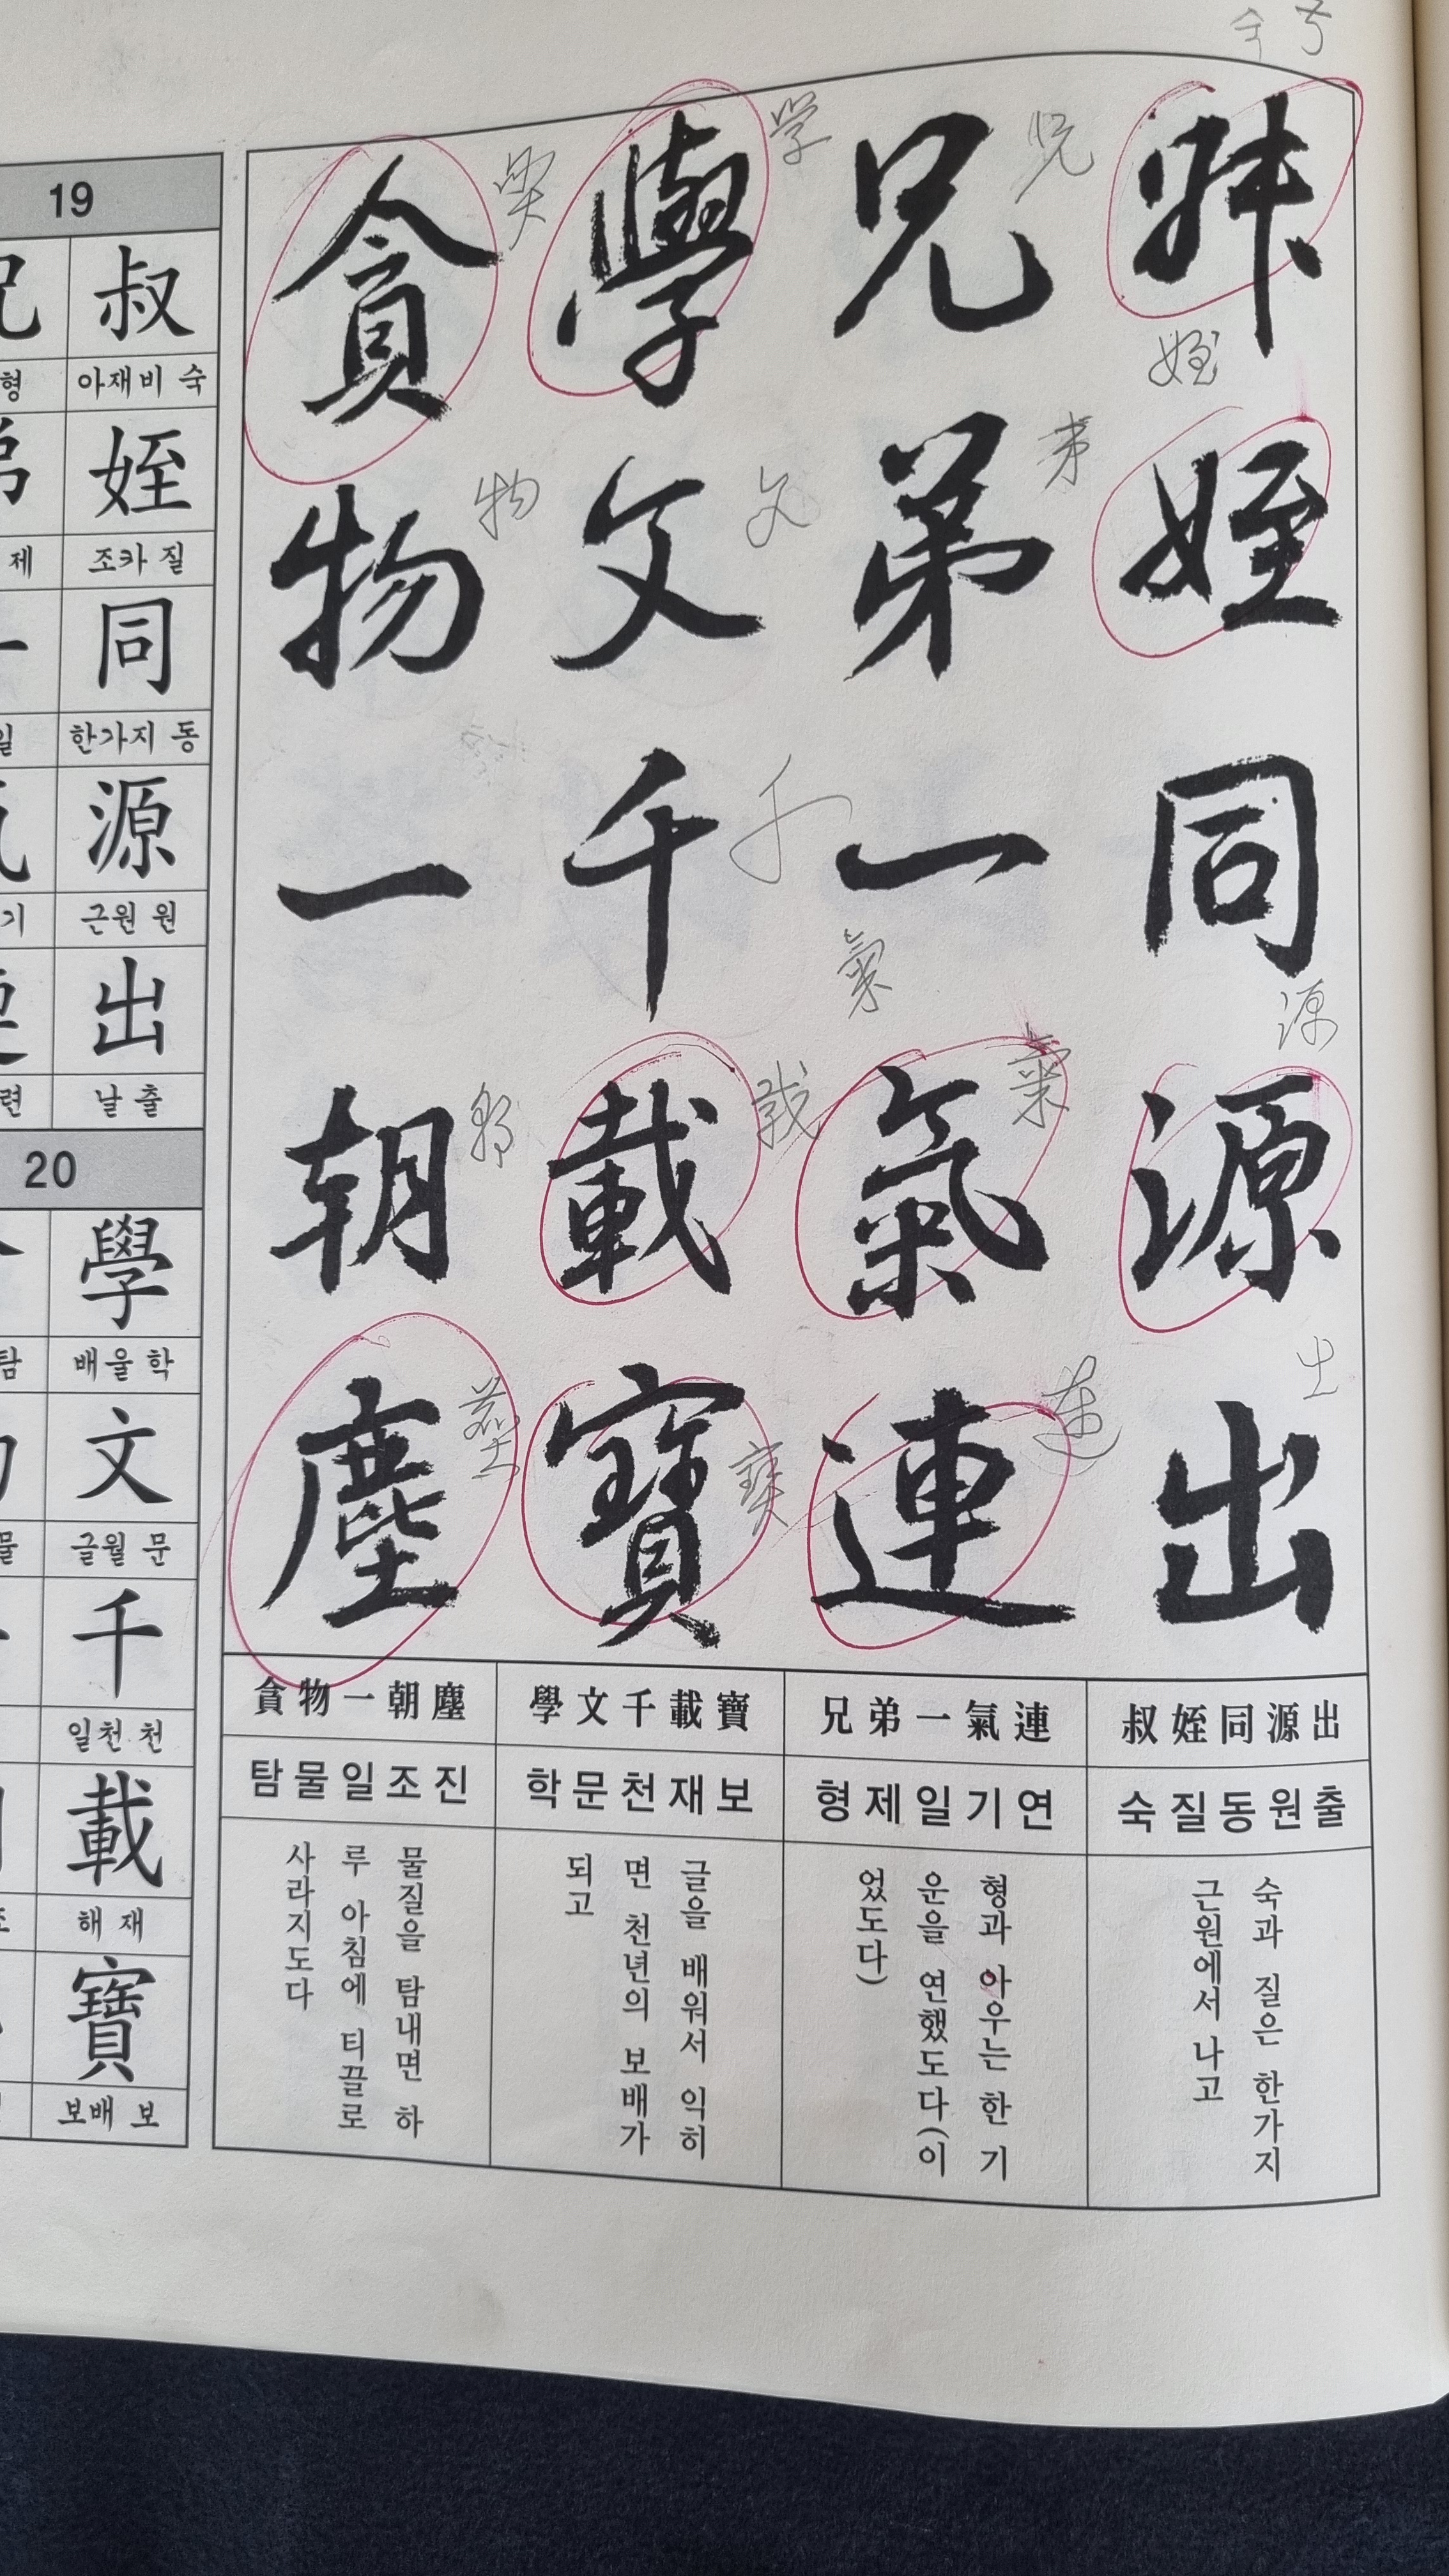 叔姪同源出
兄弟一氣連
學文千載寶
貪物一朝塵
叔姪同源出
숙질동원출
숙과 질은 한가지
근원에서 나고
兄弟一氣連
형제일기연
형과 아우는 한 기
운을 연했도다(이
었도다)
學文千載寶
학문천재보
글을 배워서 익히
면 천년의 보배가
되고
貪物一朝塵
탐물일조진
물질을 탐내면 하
루 아침에 티끌로
사라지도다
19
叔
아재비 숙
姪
조카 질
同
한가지 동
源
근원 원
出
날 출
형
제
일
기
련
20
學
배울 학
文
글월 문
千
일천 천
載
해 재
寶
보배 보
탐
물
学
兄
弟
姪
源
文
物
千